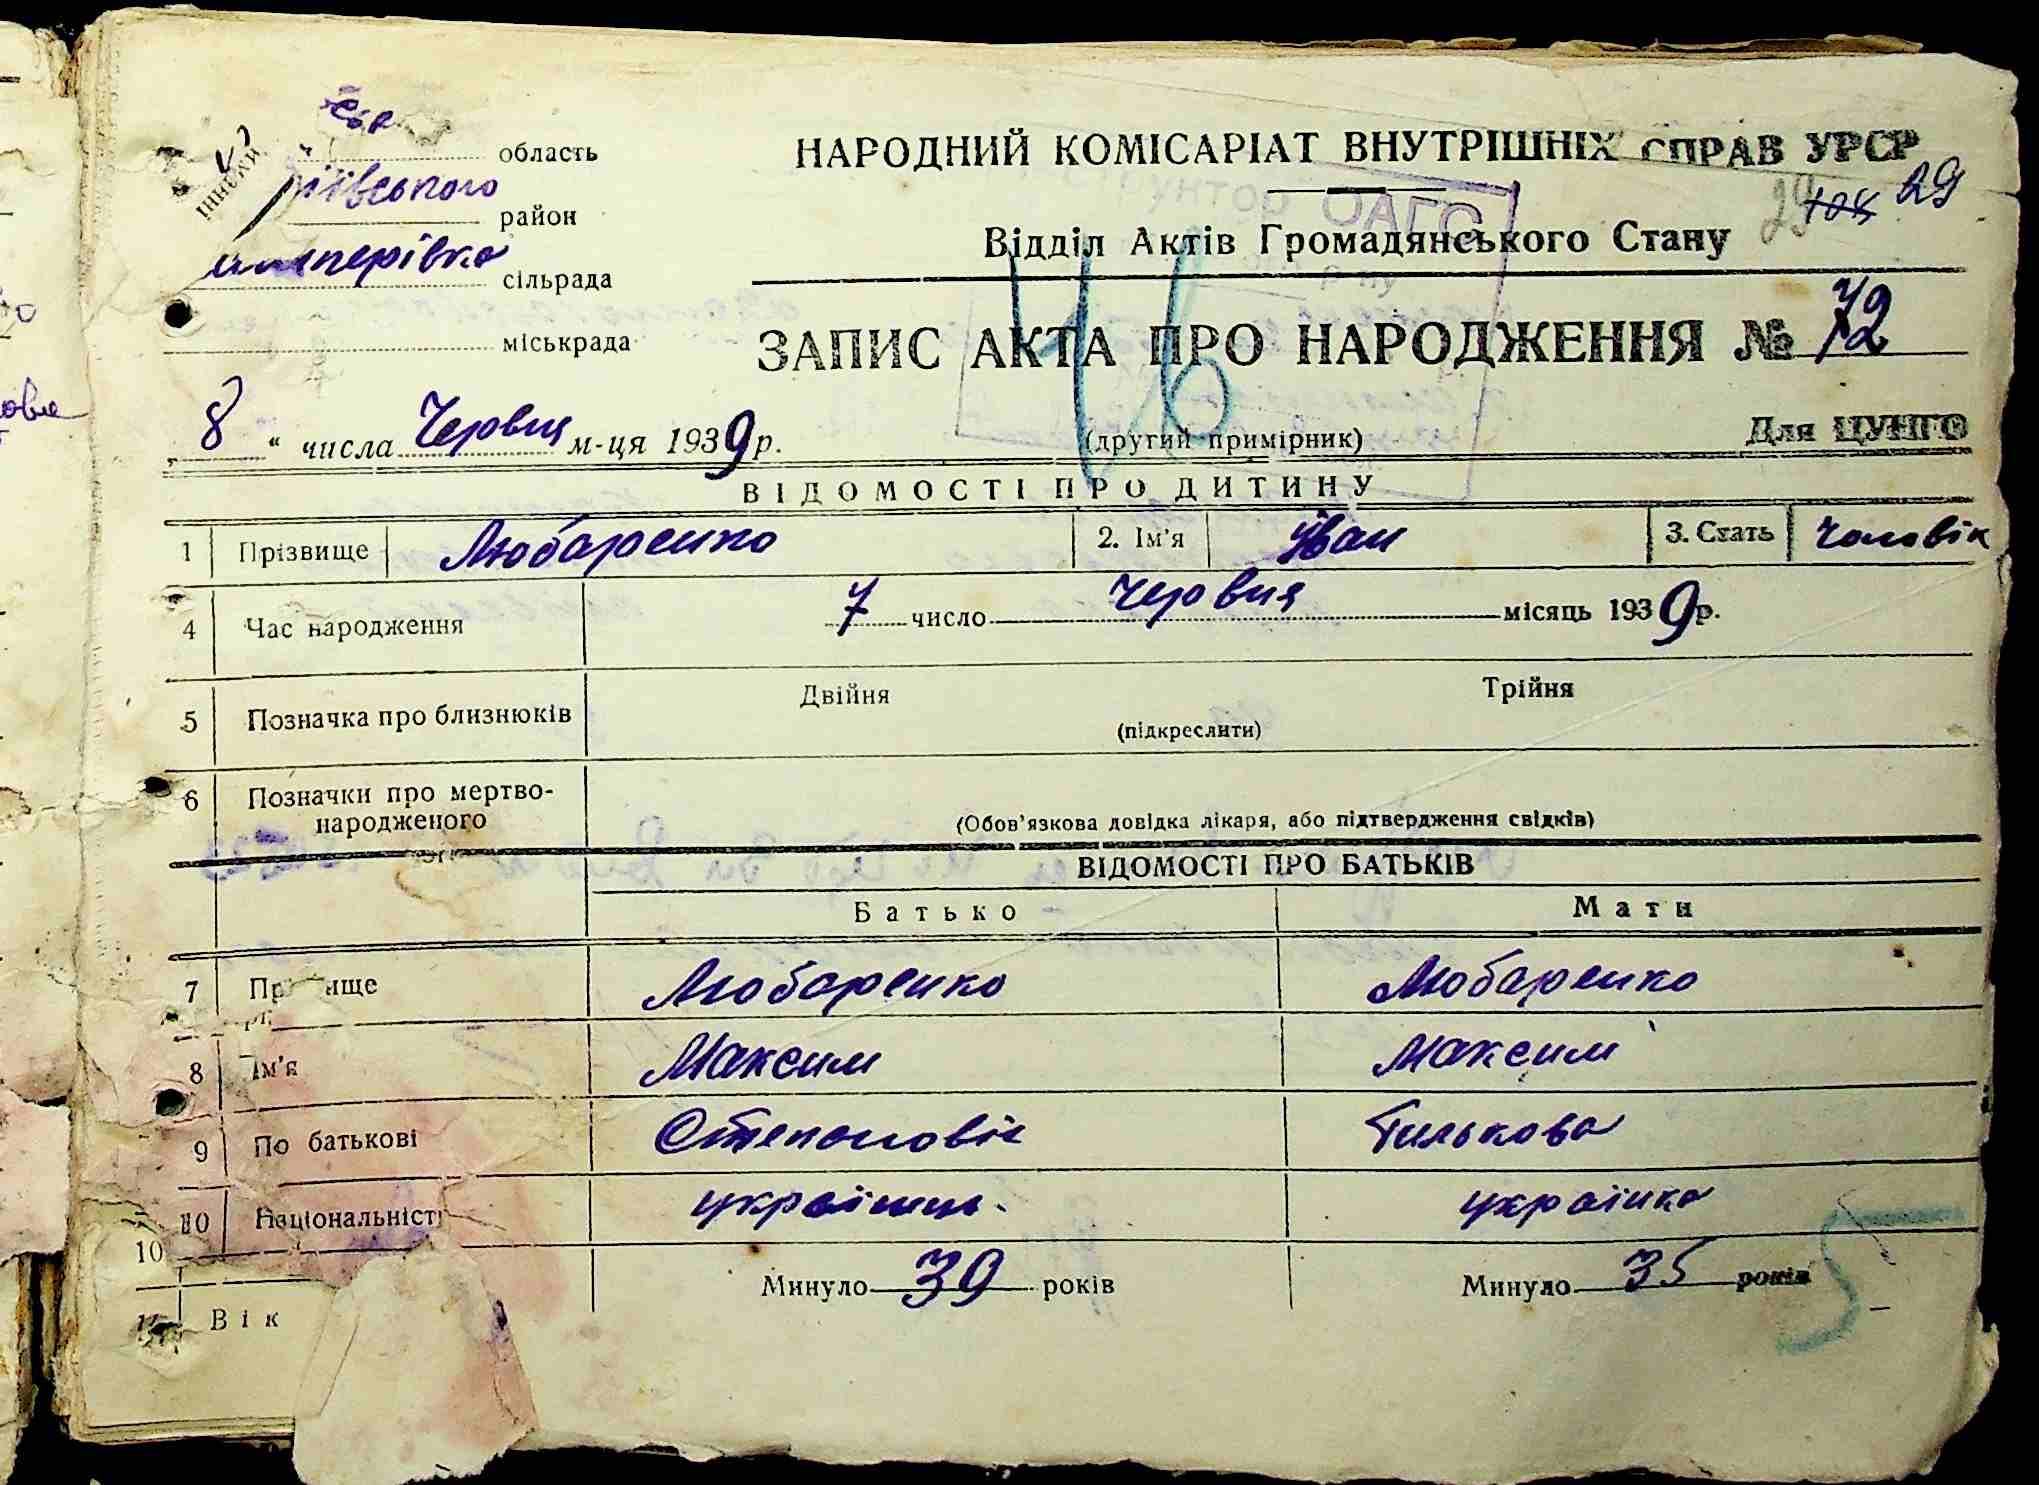 область
НАРОДНИЙ КОМІСАРІАТ ВНУТРІШНІХ СПРАВ УРСР
район
29 104 29
Відділ Актів Громадянського Стану
ОАГС
сільрада
міськрада
46
ЗАПИС АКТА ПРО НАРОДЖЕННЯ № 72
„ 8 “ числа Червня м-ця 1939 р.
(другий примірник)
Для ЦУНГО
ВІДОМОСТІ ПРО ДИТИНУ
1 Прізвище Любаренко 2. Ім'я Іван 3. Стать чоловік
4 Час народження 7 число Червня місяць 1939 р.
5 Позначка про близнюків Двійня Трійня
(підкреслити)
6 Позначки про мертво-
народженого
(Обов'язкова довідка лікаря, або підтвердження свідків)
ВІДОМОСТІ ПРО БАТЬКІВ
Батько Мати
7 Любаренко Любаренко
8 Ім'я Максим Максим
9 По батькові Степановіч
10 Національність українець. українка
10
Вік Минуло 39 років Минуло 35 років